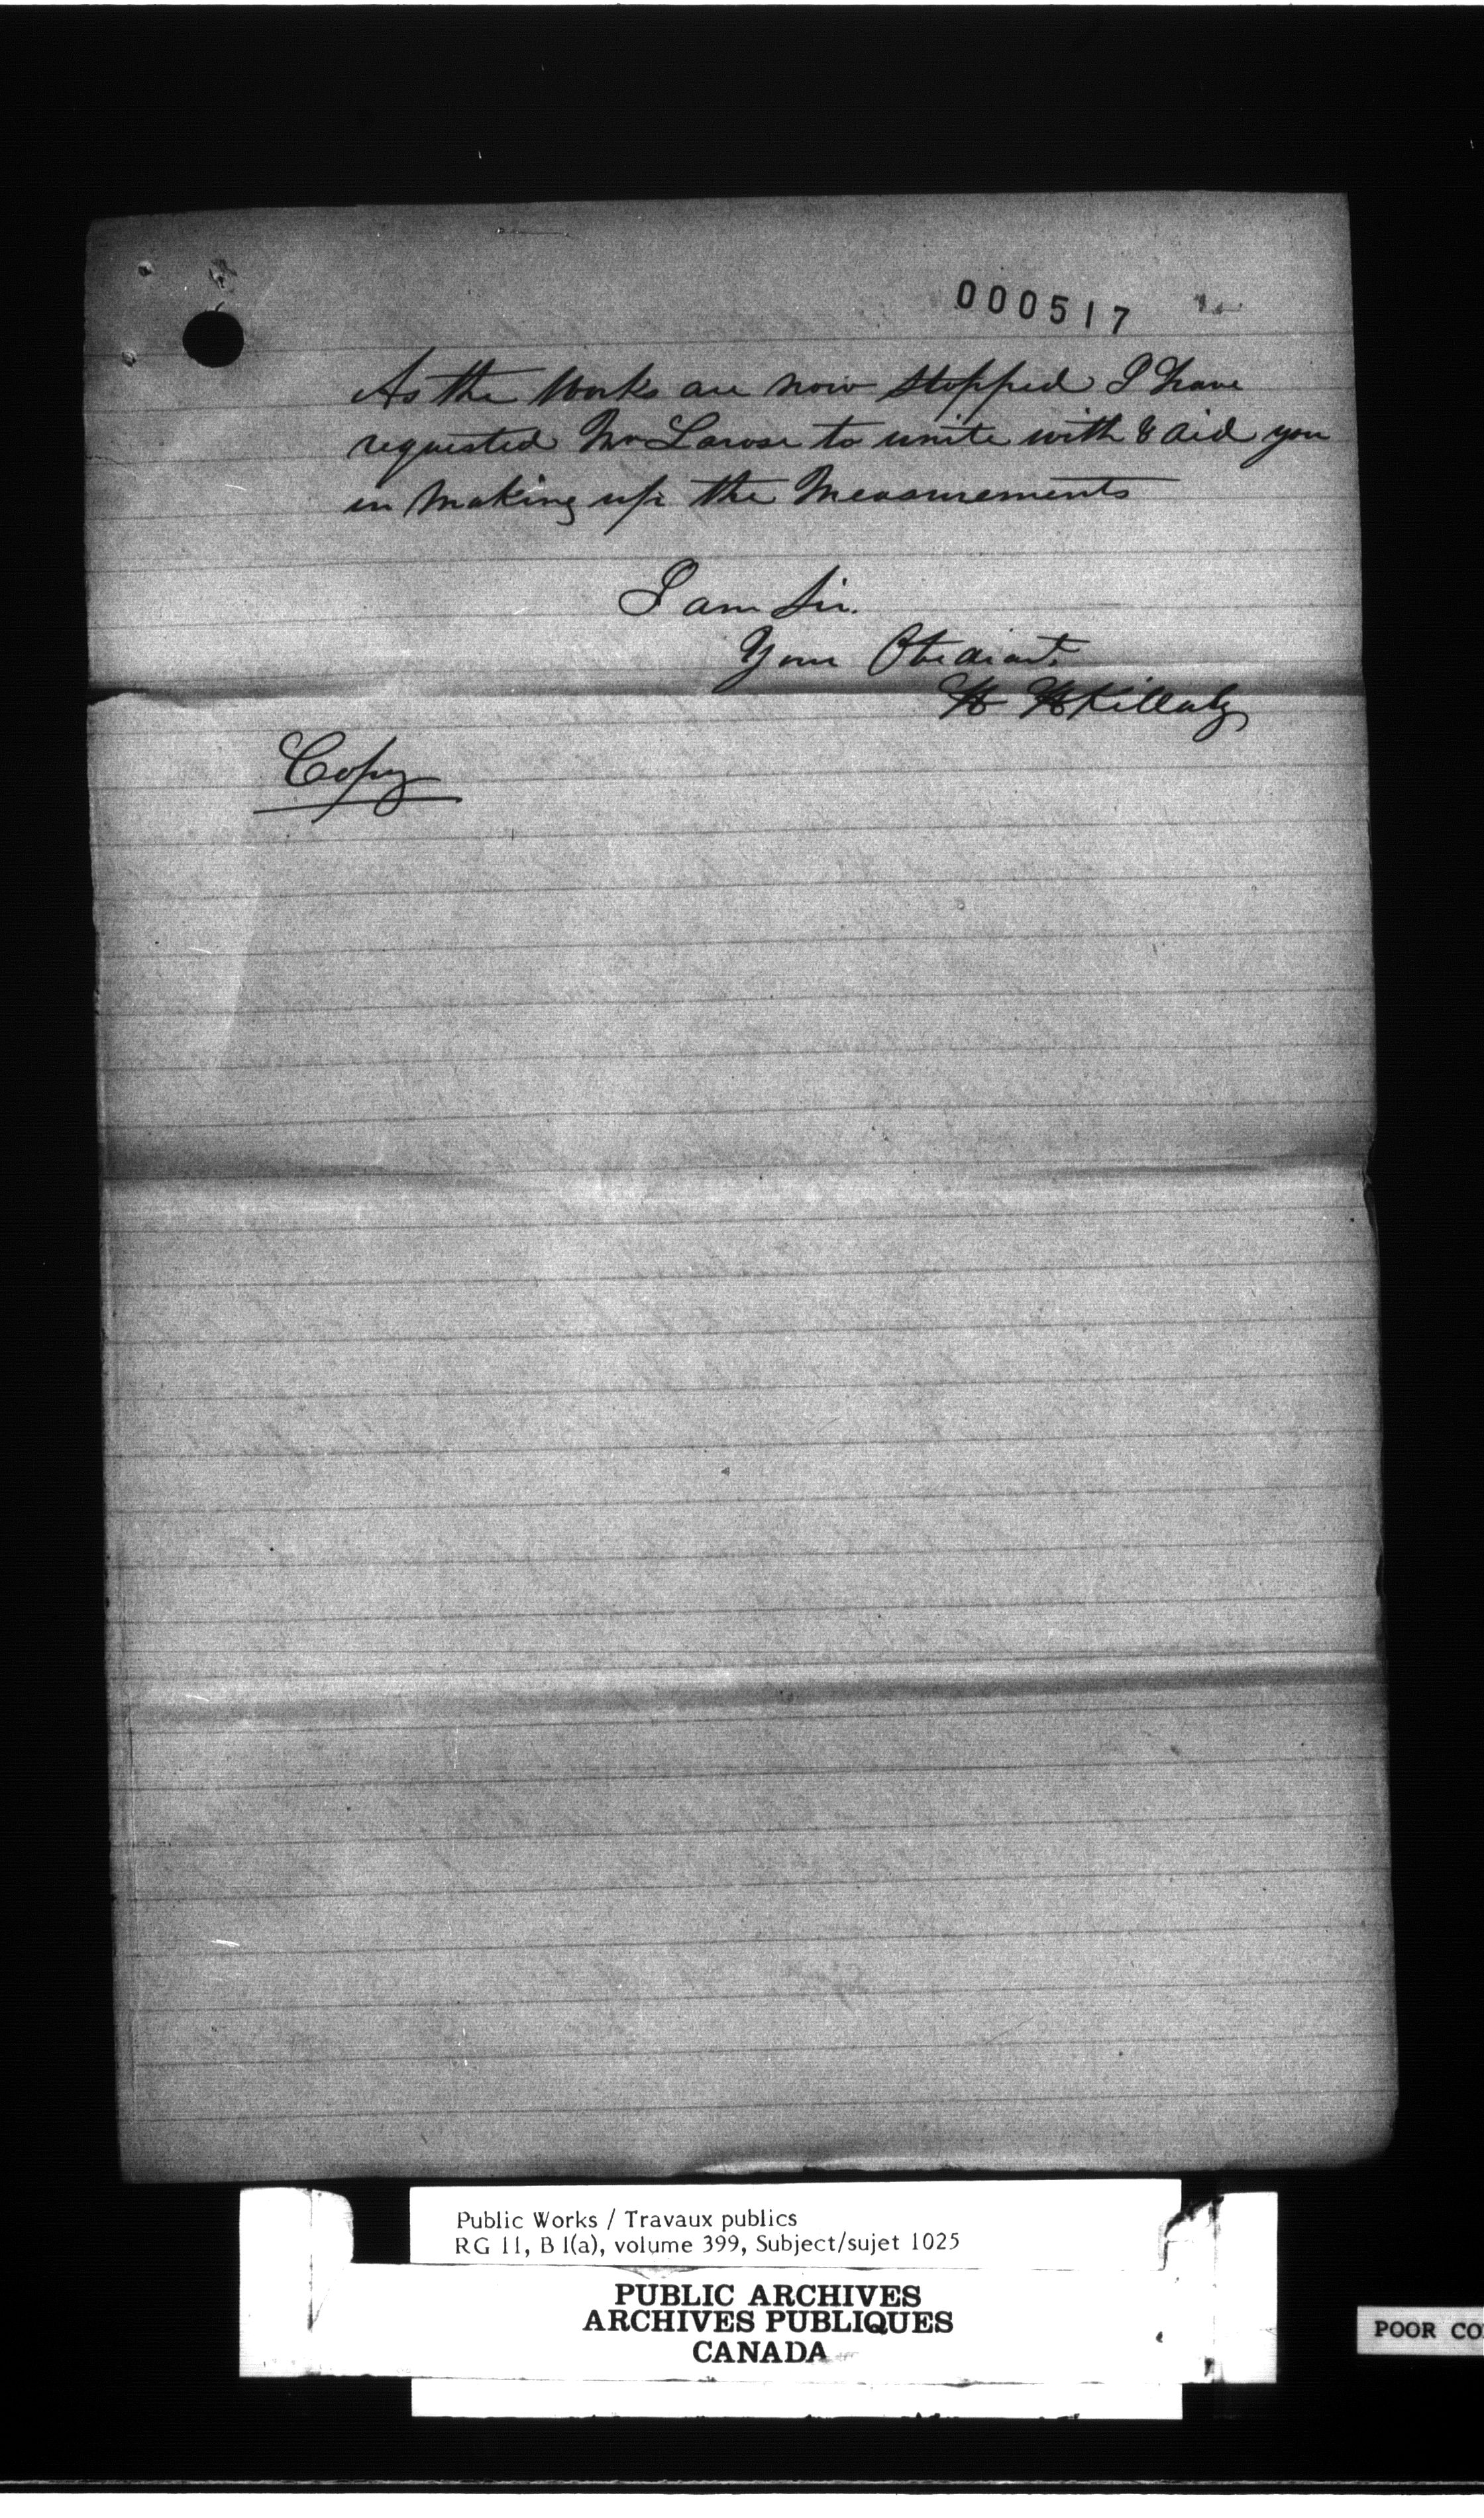 000517
As the Works are now stopped I have
requested Mr Larose to unite with & aid you
in Making up the Measurements
I am Sir.
Your Obedient.
H H Killaly
Copy
Public Works / Travaux publics
RG 11, B 1(a), volume 399, Subject/sujet 1025
PUBLIC ARCHIVES
ARCHIVES PUBLIQUES
CANADA
POOR CO